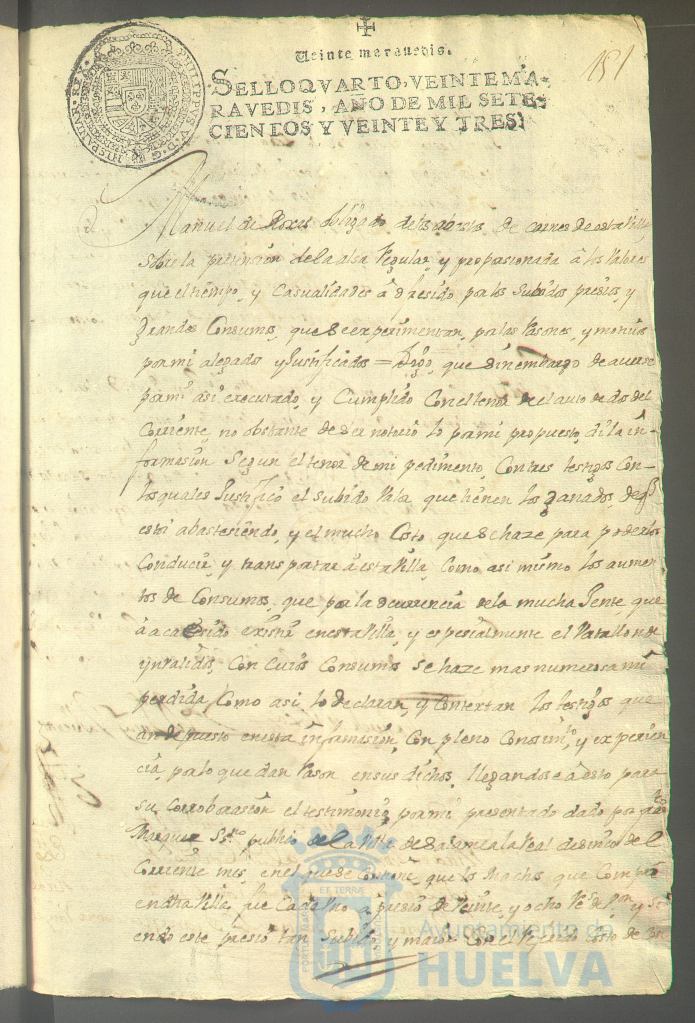 181
Veinte maravedis.
SELLO QVARTO, VEINTE MA-
RAVEDIS, AÑO DE MIL SETE-
CIENTOS Y VEINTE Y TRES.
PHILIPPUS V D G HISPANIAR REX
Manuel de obligado del abasto de carnes de esta Villa
sobre la pretension de la alsa Regular, y proporsionada â los Valores
que el tiempo, y Casualidades â ofresido por los Subidos presios y
grandes Consumos, que se experimentan, por las Rasones, y motivos
por mi alegados y Justificados = Digo, que sin embargo de averse
por mi asi executado, y Cumplido Con el tenor de el auto de dos del
Corriente, no obstante de ser notorio lo por mi propuesto, di la in-
formasion Segun el tenor de mi pedimento, Con tres testigos Con
los quales Justificò el subido Valor que tienen los ganados, de q
estoi abastesiendo, y el mucho Costo que se haze para poderlos
Conducir, y transportar â esta Villa, Como asi mismo los aumen-
tos de Consumos, que por la Concurrencia de la mucha Jente, que
â acaesido existir en esta Villa, y espesialmente el Batallon de
ynvalidos, Con Cuios Consumos se haze mas numerosa mi
perdida, Como asi lo declaran, y Contextan los testigos que
an depuesto en esta informasion, Con pleno Conosim.to, y experien
cia, por lo que dan Rason en sus dichos, llegandose â esto para
su Corroborasion el testimonio, por mi presentado dado por
Marquez Ss.no publico de la Villa de Salamea la Real de sinco de el
Corriente mes, en el que de Contiene, que los Machos que Compre
en dha Villa fue Cada Uno a presio de Veinte, y ocho R.s de V.on y Si
endo este presio tan Subido, y maior Con el Costo de
Ayuntamiento de
HUELVA